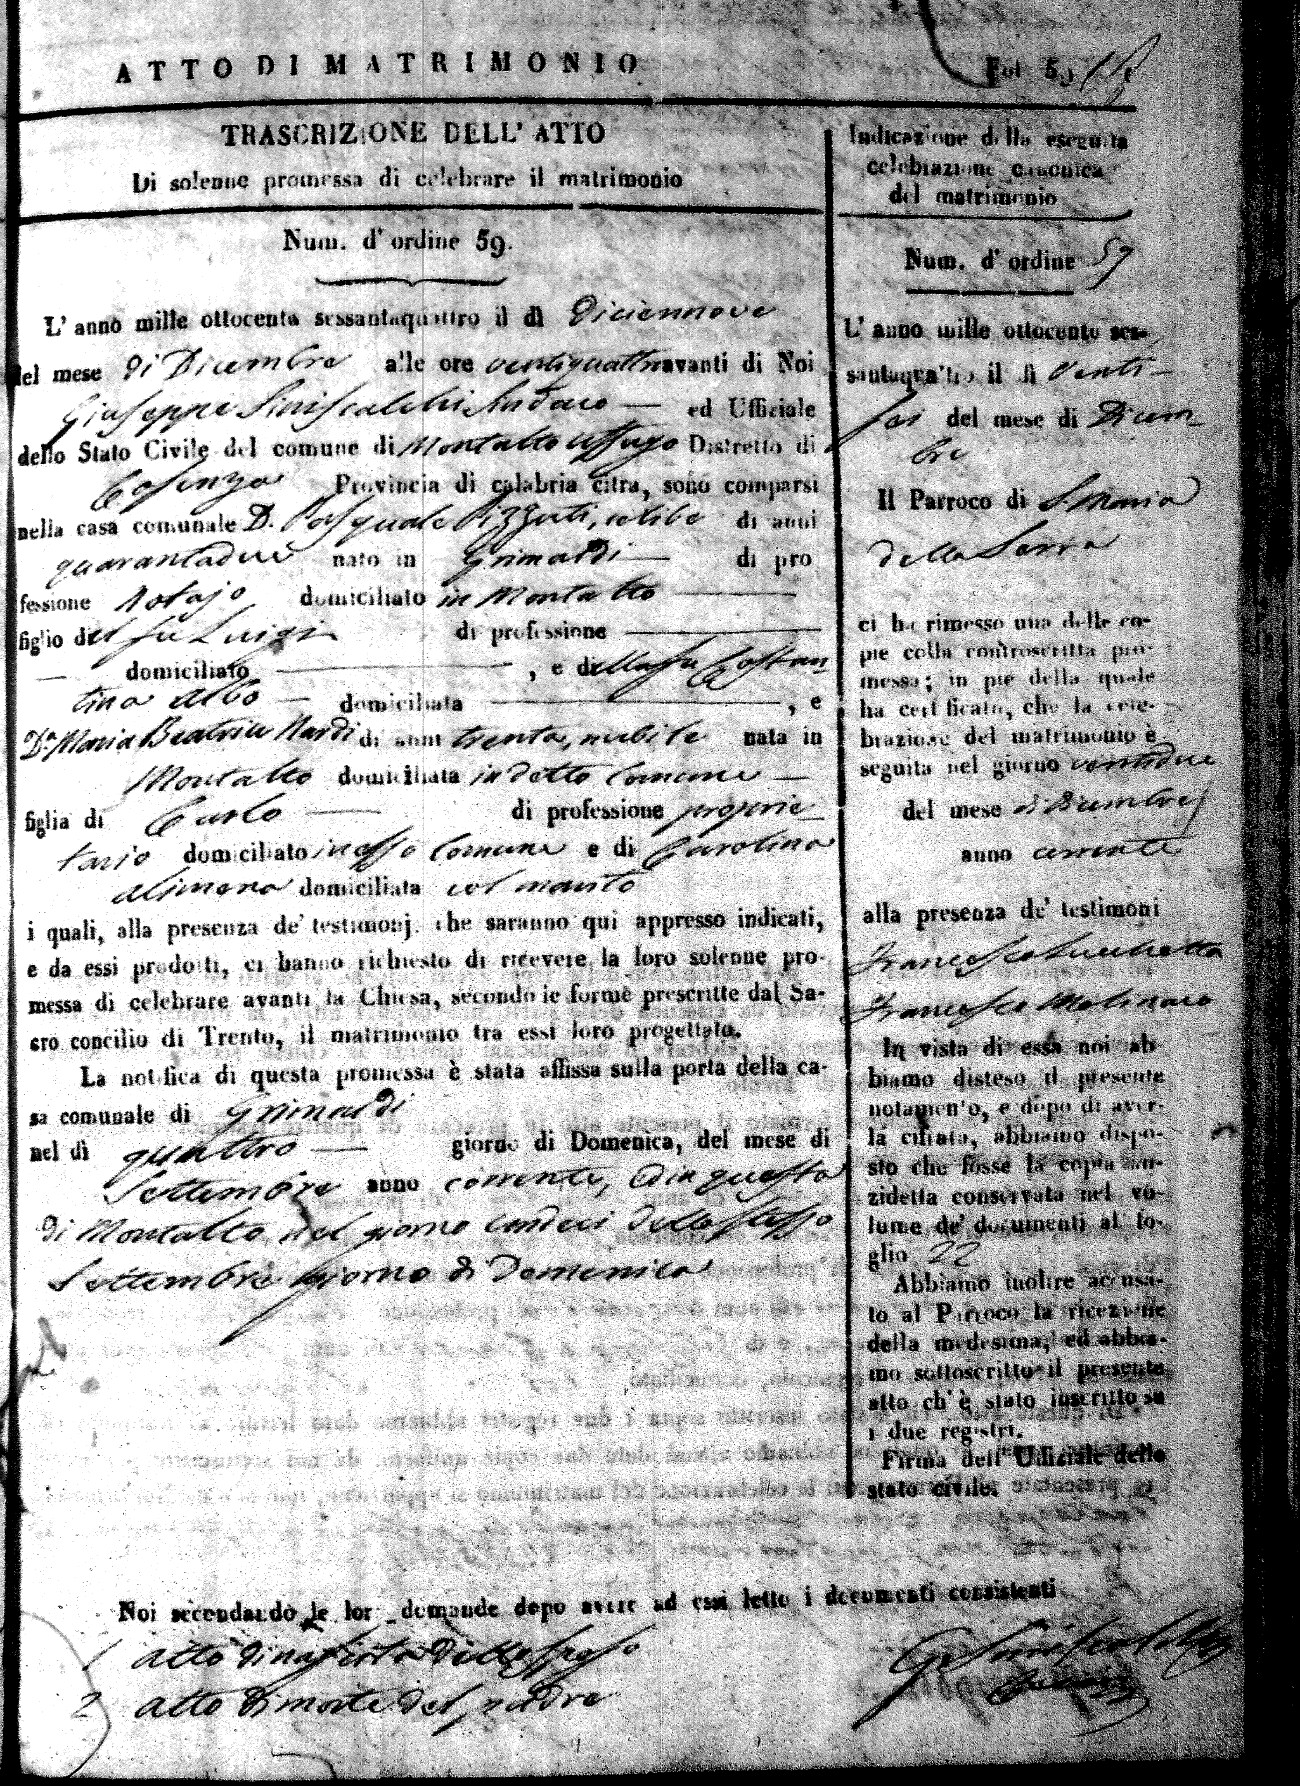 ATTO DI MATRIMONIO
Fol 59
TRASCRIZIONE DELL' ATTO
Di solenne promessa di celebrare il matrimonio
Num. d' ordine 59.
L' anno mille ottocento sessantaquattro il dì Diciennove
del mese di Dicembre alle ore ventiquattro avanti di Noi
Giuseppe Siniscalchi Sindaco — ed Ufficiale
dello Stato Civile del comune di Montalto Uffugo Distretto di
Cosenza Provincia di calabria citra, sono comparsi
nella casa comunale D. Pasquale Pizzuti, celibe di anni
quarantadue nato in Grimaldi — di pro
fessione Notajo domiciliato in Montalto —
figlio del fu Luigi di professione —
— domiciliato — , e della fu Costan
tina Albo — domiciliata — , e
D.a Maria Beatrice Nardi di anni trenta, nubile nata in
Montalto domiciliata in detto Comune —
figlia di Carlo — di professione proprie
tario domiciliato in esso Comune e di Carolina
Alimena domiciliata col marito
i quali, alla presenza de' testimonj. che saranno qui appresso indicati,
e da essi prodotti, ci hanno richiesto di ricevere la loro solenne pro-
messa di celebrare avanti la Chiesa, secondo le forme prescritte dal Sa-
cro concilio di Trento, il matrimonio tra essi loro progettato.
La notifica di questa promessa è stata affissa sulla porta della ca-
sa comunale di Grimaldi
nel dì quattro — giorno di Domenica, del mese di
Settembre anno corrente, ed in questa
di Montalto nel giorno undeci dello stesso
Settembre giorno di Domenica
Noi secondando le lor demande dopo avere ad essi letto i documenti consistenti
1 atto di nascita dello sposo
2 atto di morte del padre
Indicazione della eseguita
celebrazione canonica
del matrimonio
Num. d' ordine 59
L' anno mille ottocento ses-
santaquattro il dì Venti-
sei del mese di Dicem
bre
Il Parroco di S. Maria
della Serra
ci ha rimesso una delle co-
pie colla controscritta pro-
messa; in piè della quale
ha certificato, che la cele-
brazione del matrimonio è
seguita nel giorno ventidue
del mese di Dicembre
anno corrente
alla presenza de' testimoni
Francesco Lucchetta
Francesco Molinaro
In vista di essa noi ab
biamo disteso il presente
notamento, e dopo di aver-
la cifrata, abbiamo dispo-
sto che fosse la copia an-
zidetta conservata nel vo-
lume de' documenti al fo-
glio 22
Abbiamo inoltre accusa-
to al Parroco la ricezione
della medesima, ed abbia-
mo sottoscritto il presente
atto ch' è stato inscritto su
i due registri.
Firma dell' Uffiziale dello
stato civile.